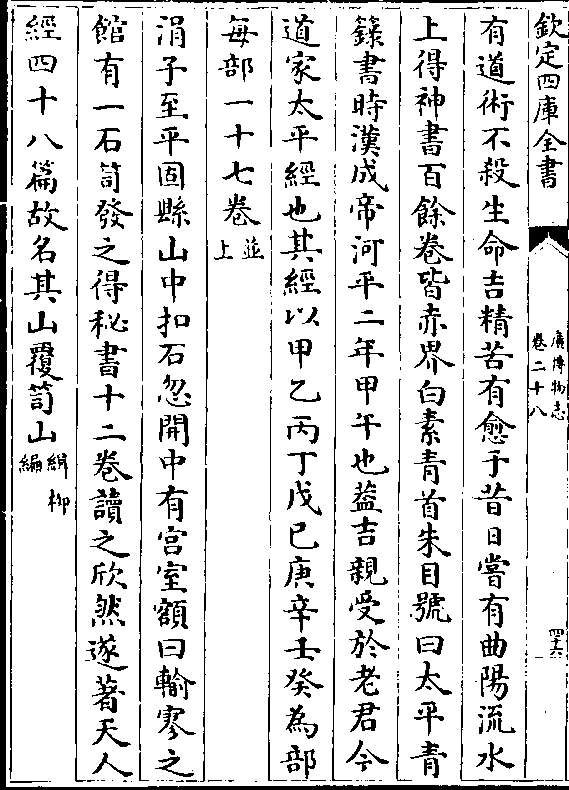 欽定四庫全書
廣博物志
卷二十八
四十六
有道術不殺生命吉精苦有愈于昔日嘗有曲陽流水
上得神書百餘卷皆赤界白素青首朱目號曰太平青
籙書時漢成帝河平二年甲午也葢吉親受於老君今
道家太平經也其經以甲乙丙丁戊己庚辛壬癸為部
每部一十七卷並上
涓子至平固縣山中扣石忽開中有宮室額曰輸寥之
館有一石笥發之得秘書十二卷讀之欣然遂著天人
經四十八篇故名其山覆笥山緝柳編